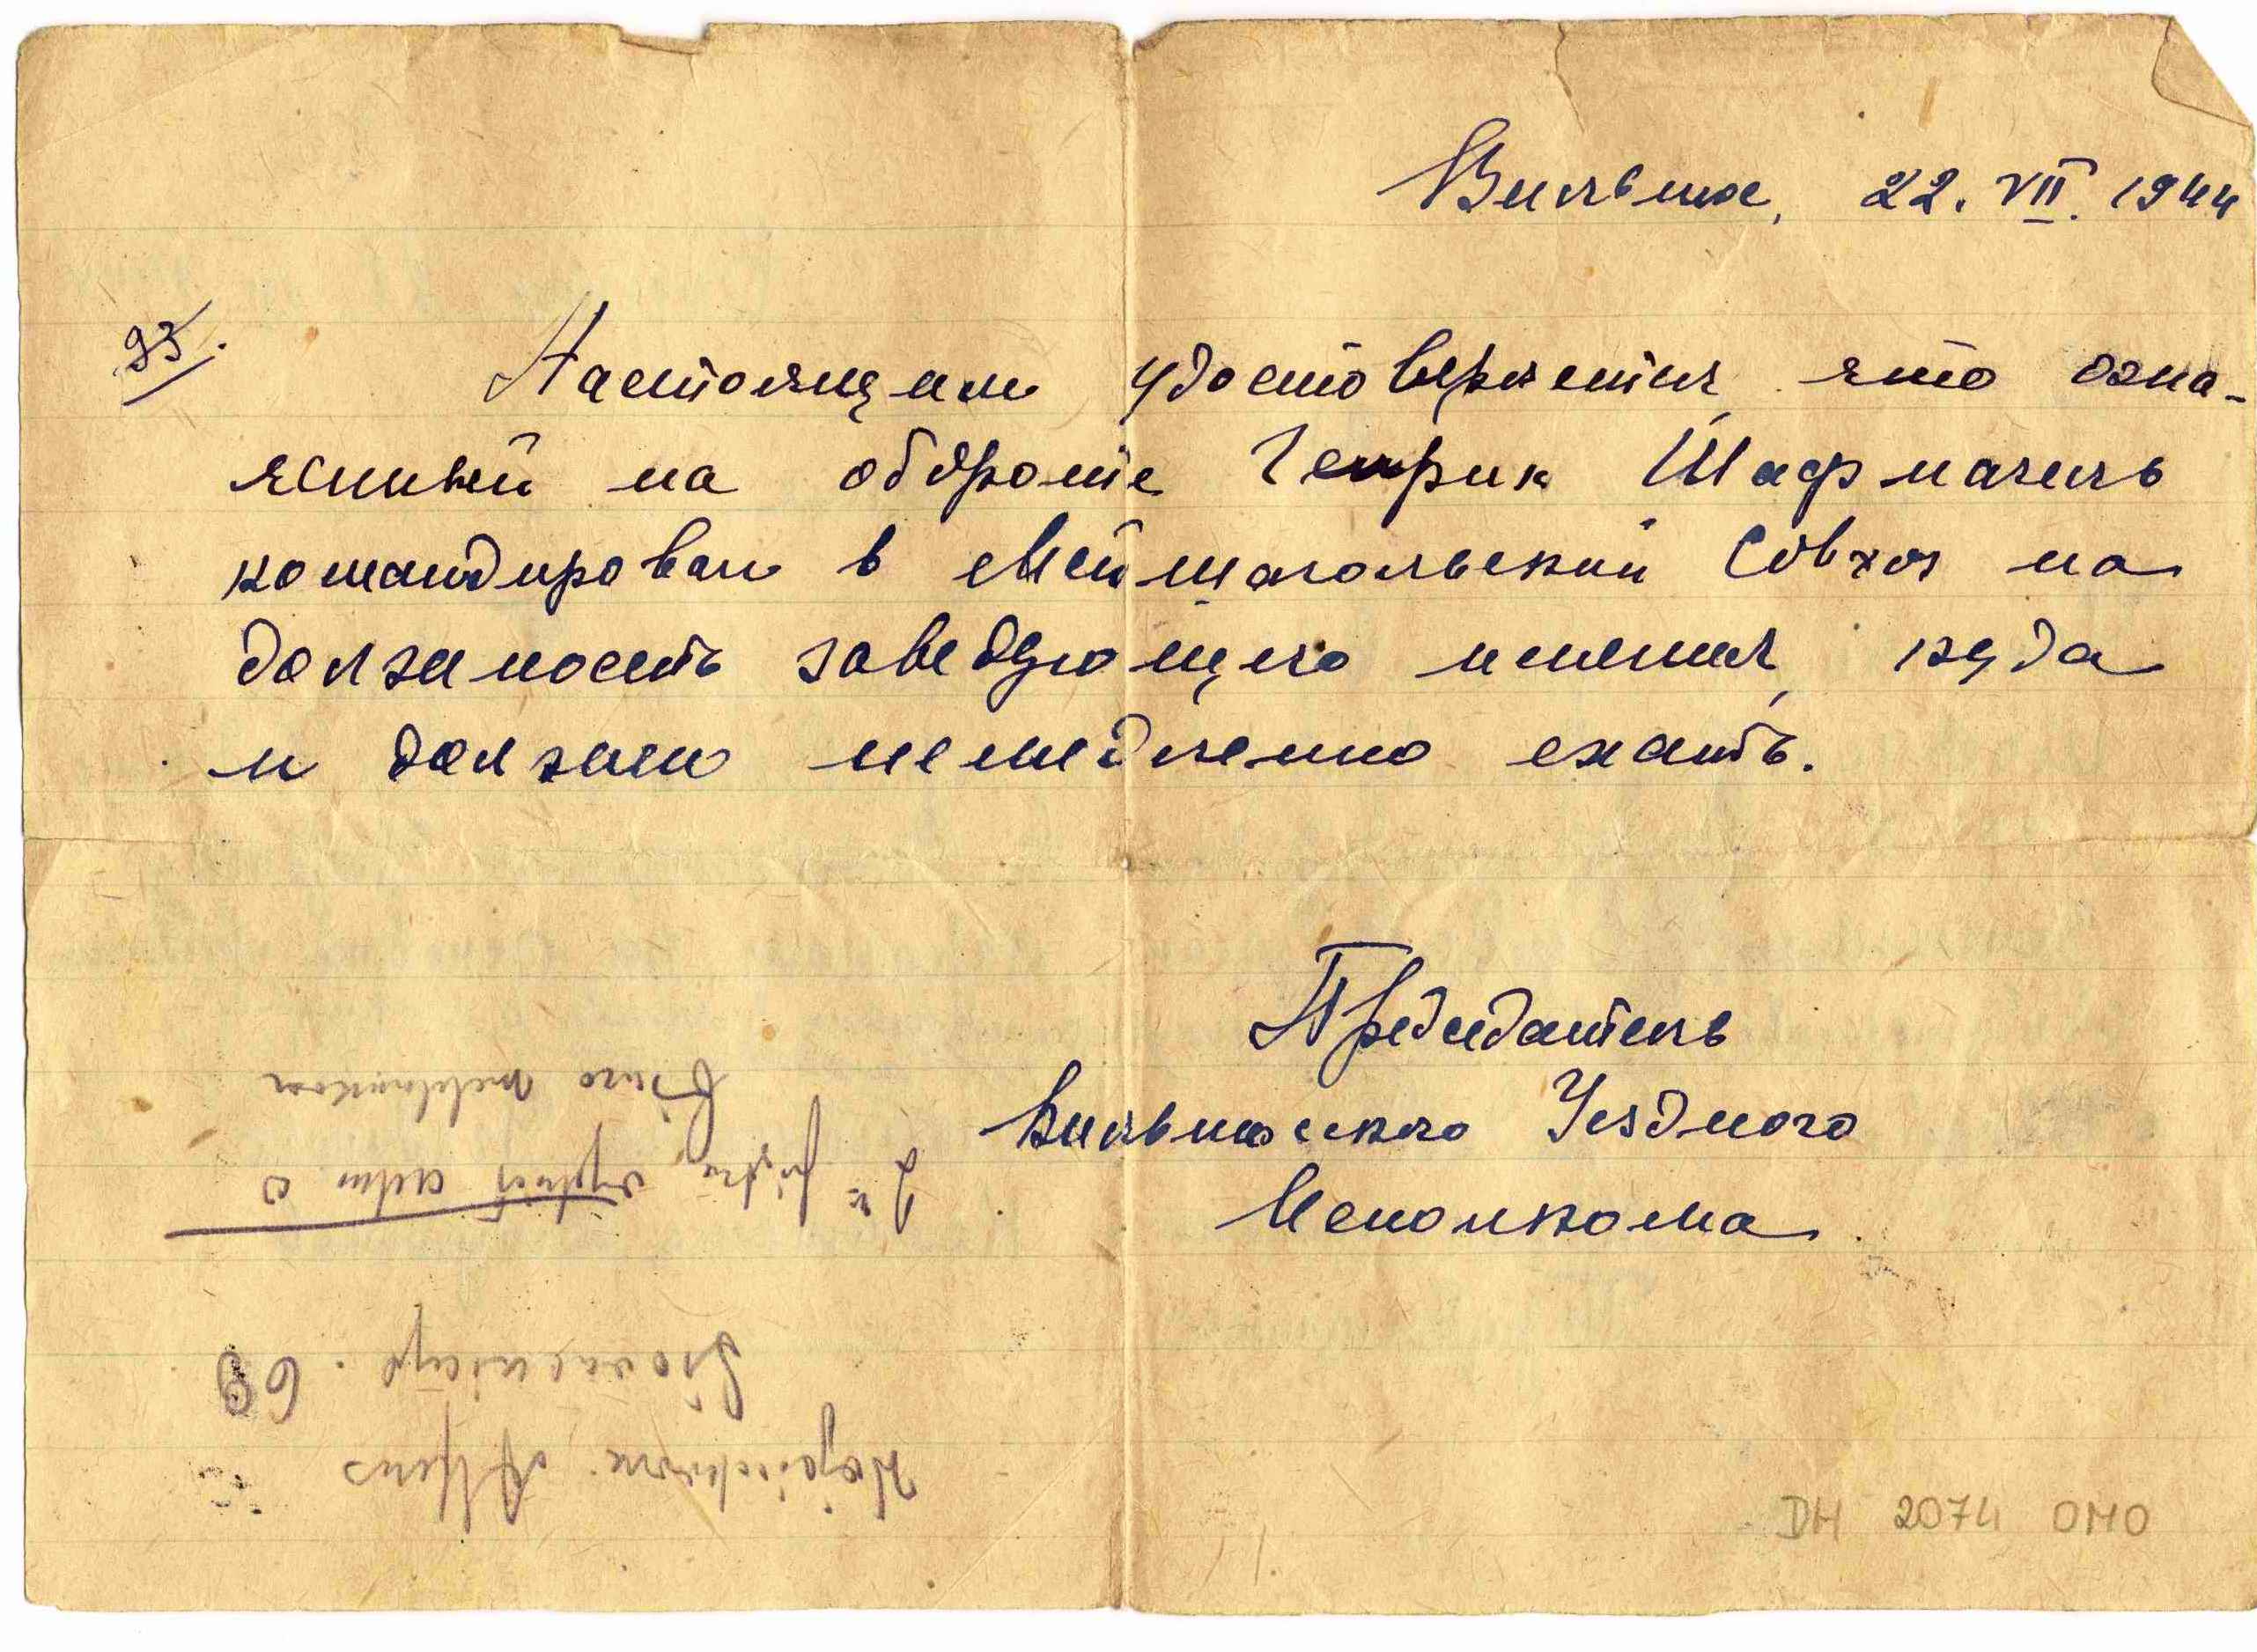 Вильно, 22. VII. 1944
95/.
Настоящим удостоверяется, что озна-
ченный на обороте Генрик Шафнагель
командирован в Мейшагольский Совхоз на
должность заведующего имения, куда
и должен немедленно ехать.
Председатель
Вильнюсского Уездного
Исполкома
60
DH 2074 OMO